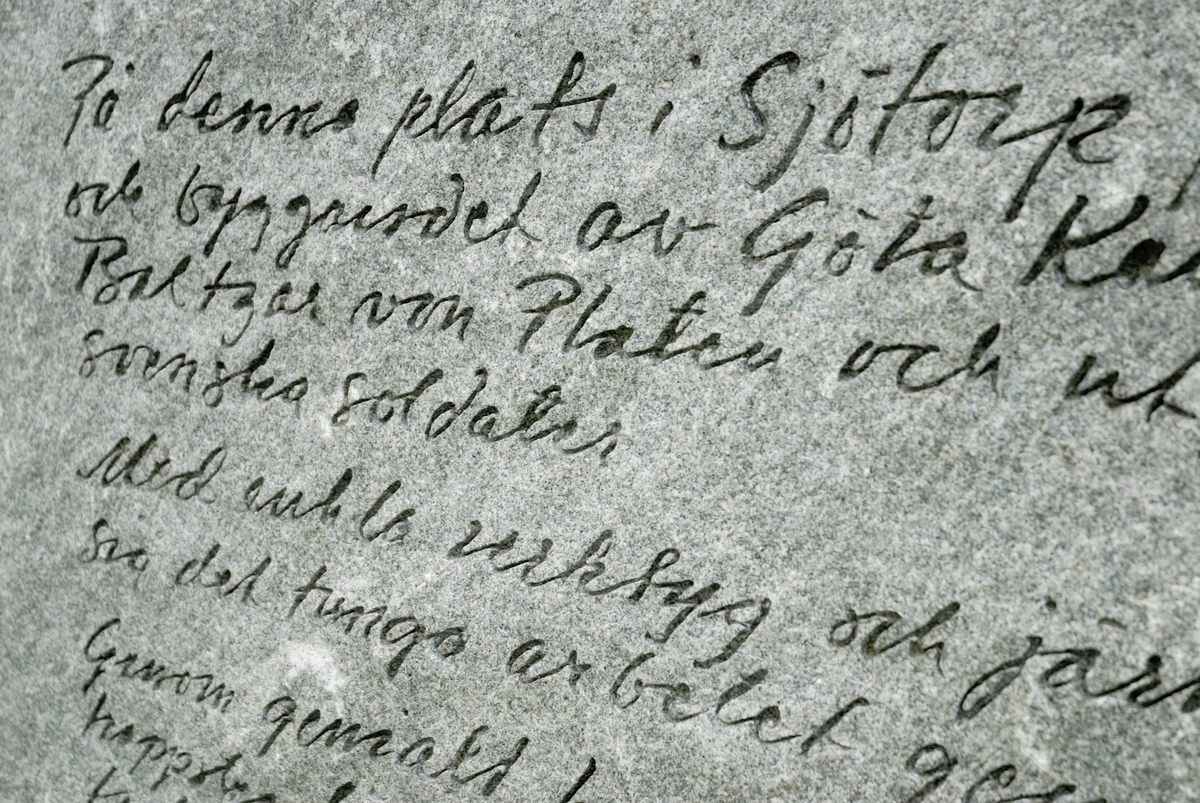 På denna plats i Sjötorp
och byggandet av Göta Kan
Baltzar von Platen och ut
svenska soldater
Med enkla verktyg och järn
sig det tunga arbetet ge
Genom genialt